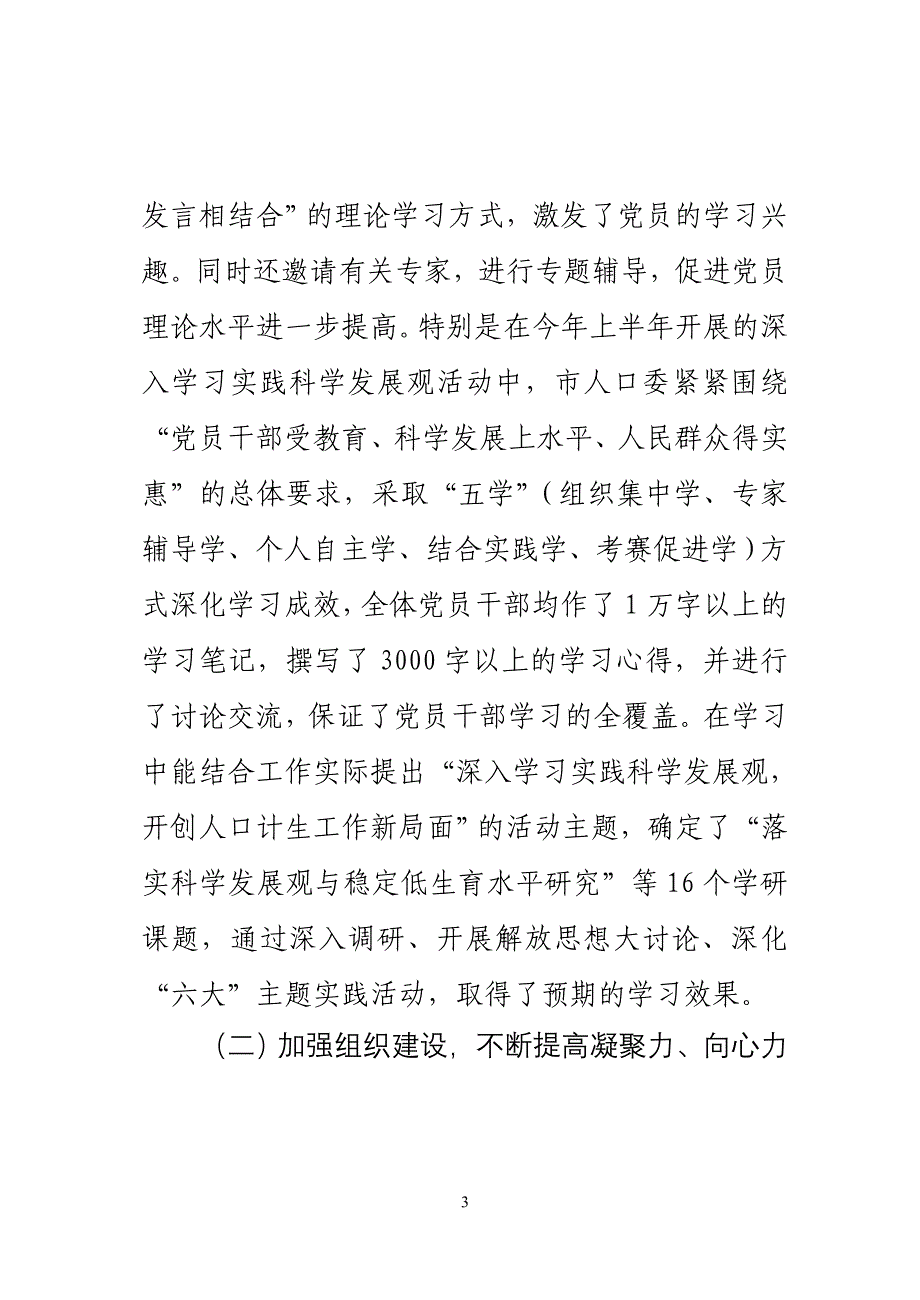 发言相结合”的理论学习方式，激发了党员的学习兴
趣。同时还邀请有关专家，进行专题辅导，促进党员
理论水平进一步提高。特别是在今年上半年开展的深
入学习实践科学发展观活动中，市人口委紧紧围绕
“党员干部受教育、科学发展上水平、人民群众得实
惠”的总体要求，采取“五学”（组织集中学、专家
辅导学、个人自主学、结合实践学、考赛促进学）方
式深化学习成效，全体党员干部均作了 1 万字以上的
学习笔记，撰写了 3000 字以上的学习心得，并进行
了讨论交流，保证了党员干部学习的全覆盖。在学习
中能结合工作实际提出“深入学习实践科学发展观，
开创人口计生工作新局面”的活动主题，确定了“落
实科学发展观与稳定低生育水平研究”等 16 个学研
课题，通过深入调研、开展解放思想大讨论、深化
“六大”主题实践活动，取得了预期的学习效果。
（二）加强组织建设，不断提高凝聚力、向心力
3